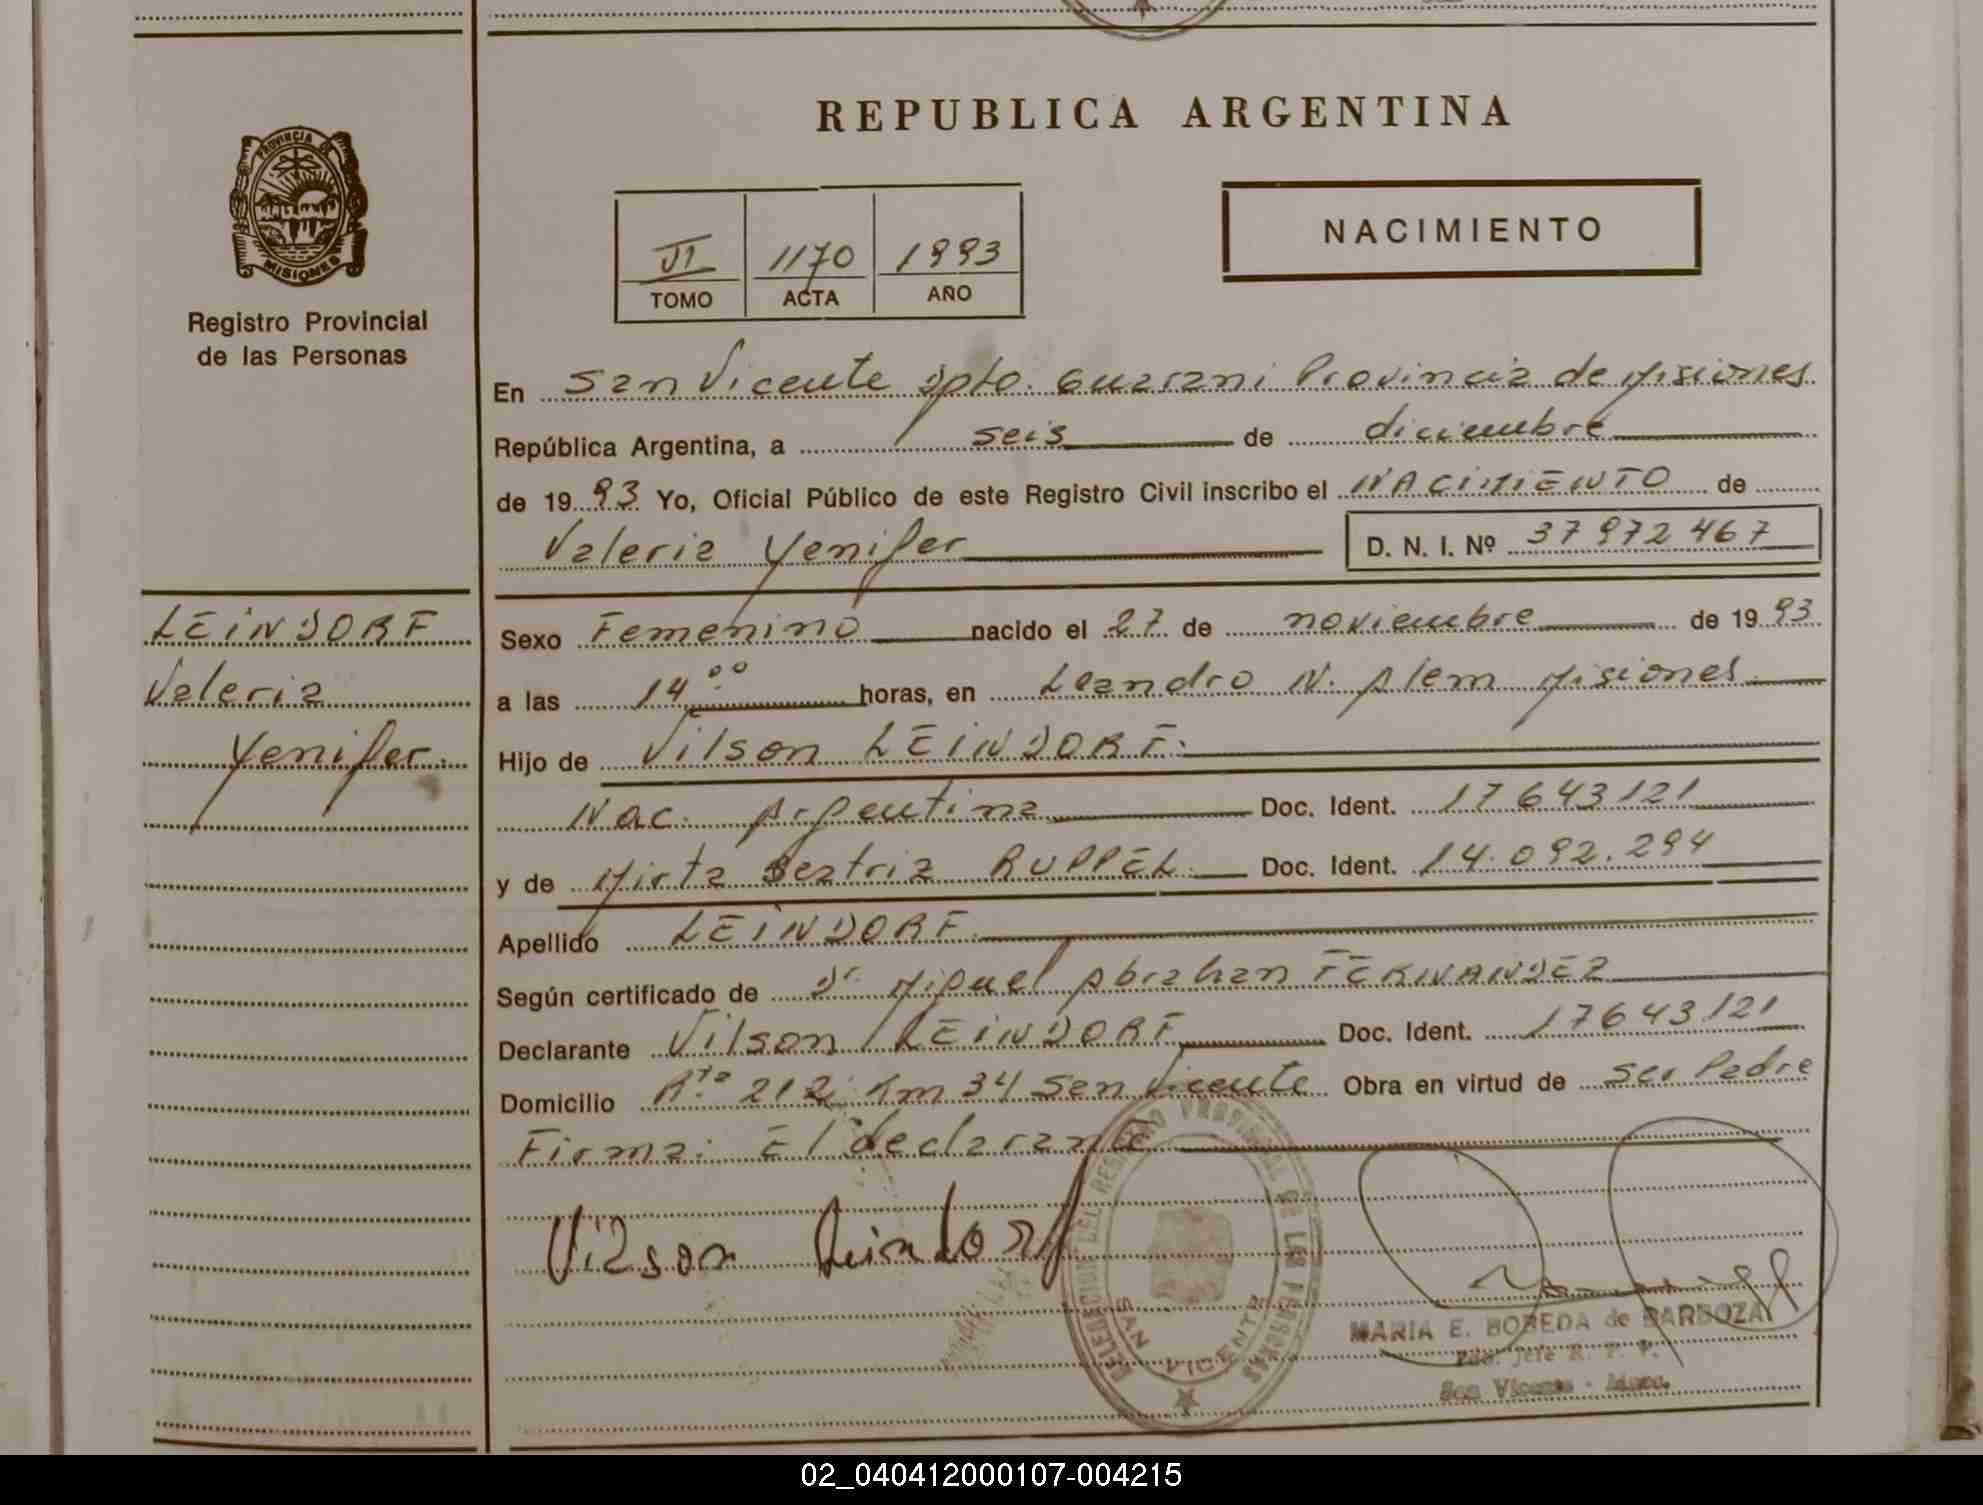 REPUBLICA ARGENTINA
PROVINCIA DE
MISIONES
Registro Provincial
de las Personas
VI 1170 1993
TOMO ACTA AÑO
NACIMIENTO
En San Vicente Dpto. Guarani Provincia de Misiones
República Argentina, a seis de diciembre
de 1993 Yo, Oficial Público de este Registro Civil inscribo el NACIMIENTO de
Valeria Yenifer D. N. I. Nº 37972467
LEINDORF
Valeria
Yenifer.
Sexo Femenino nacido el 27 de noviembre de 1993
a las 14°° horas, en Leandro N. Alem Misiones
Hijo de Vilson LEINDORF.
Nac. Argentina Doc. Ident. 17643121
y de Mirta Beatriz RUPPEL. Doc. Ident. 14.092.294
Apellido LEINDORF.
Según certificado de Dr. Miguel Abrahan FERNANDEZ
Declarante Vilson LEINDORF Doc. Ident. 17643121
Domicilio Rta. 212 Km 34 San Vicente Obra en virtud de ser Padre
Firma: El declarante
Vilson Leindorf
DELEGACION DEL REGISTRO PROVINCIAL DE LAS PERSONAS
SAN VICENTE
MARIA E. BOBEDA de BARBOZA
Jefe R. P. P.
San Vicente - Mnes.
02_040412000107-004215